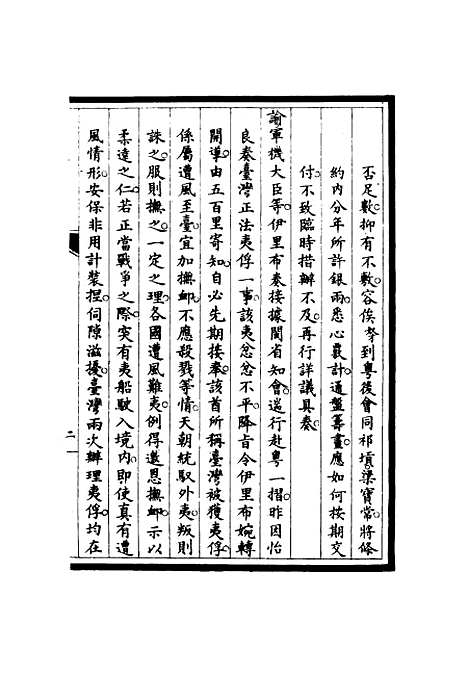 否足數抑有不敷容俟孥到粵後會同祁𡎴梁寶常將條
約內分年所許銀兩悉心覈計通盤籌畫應如何按期交
付不致臨時措辦不及再行詳議具奏
諭軍機大臣等伊里布奏接據閩省知會遄行赴粵一摺昨因怡
良奏臺灣正法夷俘一事該夷忿忿不平降旨令伊里布婉轉
開導由五百里寄知自必先期接奉該酋所稱臺灣被獲夷俘
係屬遭風至臺宜加撫卹不應殺戮等情天朝統馭外夷叛則
誅之服則撫之一定之理各國遭風難夷例得邀恩撫卹示以
柔遠之仁若正當戰爭之際突有夷船駛入境內即使真有遭
風情形安保非用計裝捏伺隙滋擾臺灣兩次辦理夷俘均在
二